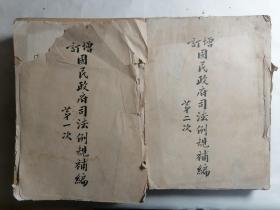 增訂
國民政府司法例規補編
第一次
增訂
國民政府司法例規補編
第二次